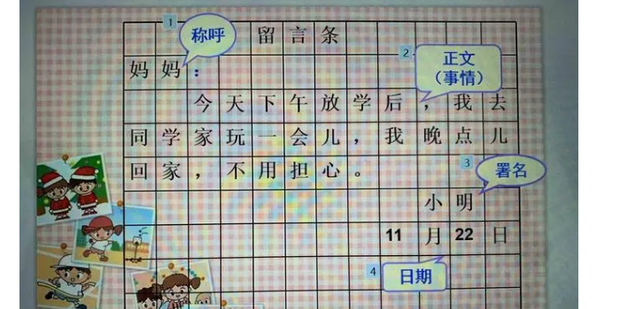 1 称呼 留言条
妈妈：
2 正文
（事情）
今天下午放学后，我去
同学家玩一会儿，我晚点儿
回家，不用担心。
3 署名
小明
11月22日
4 日期